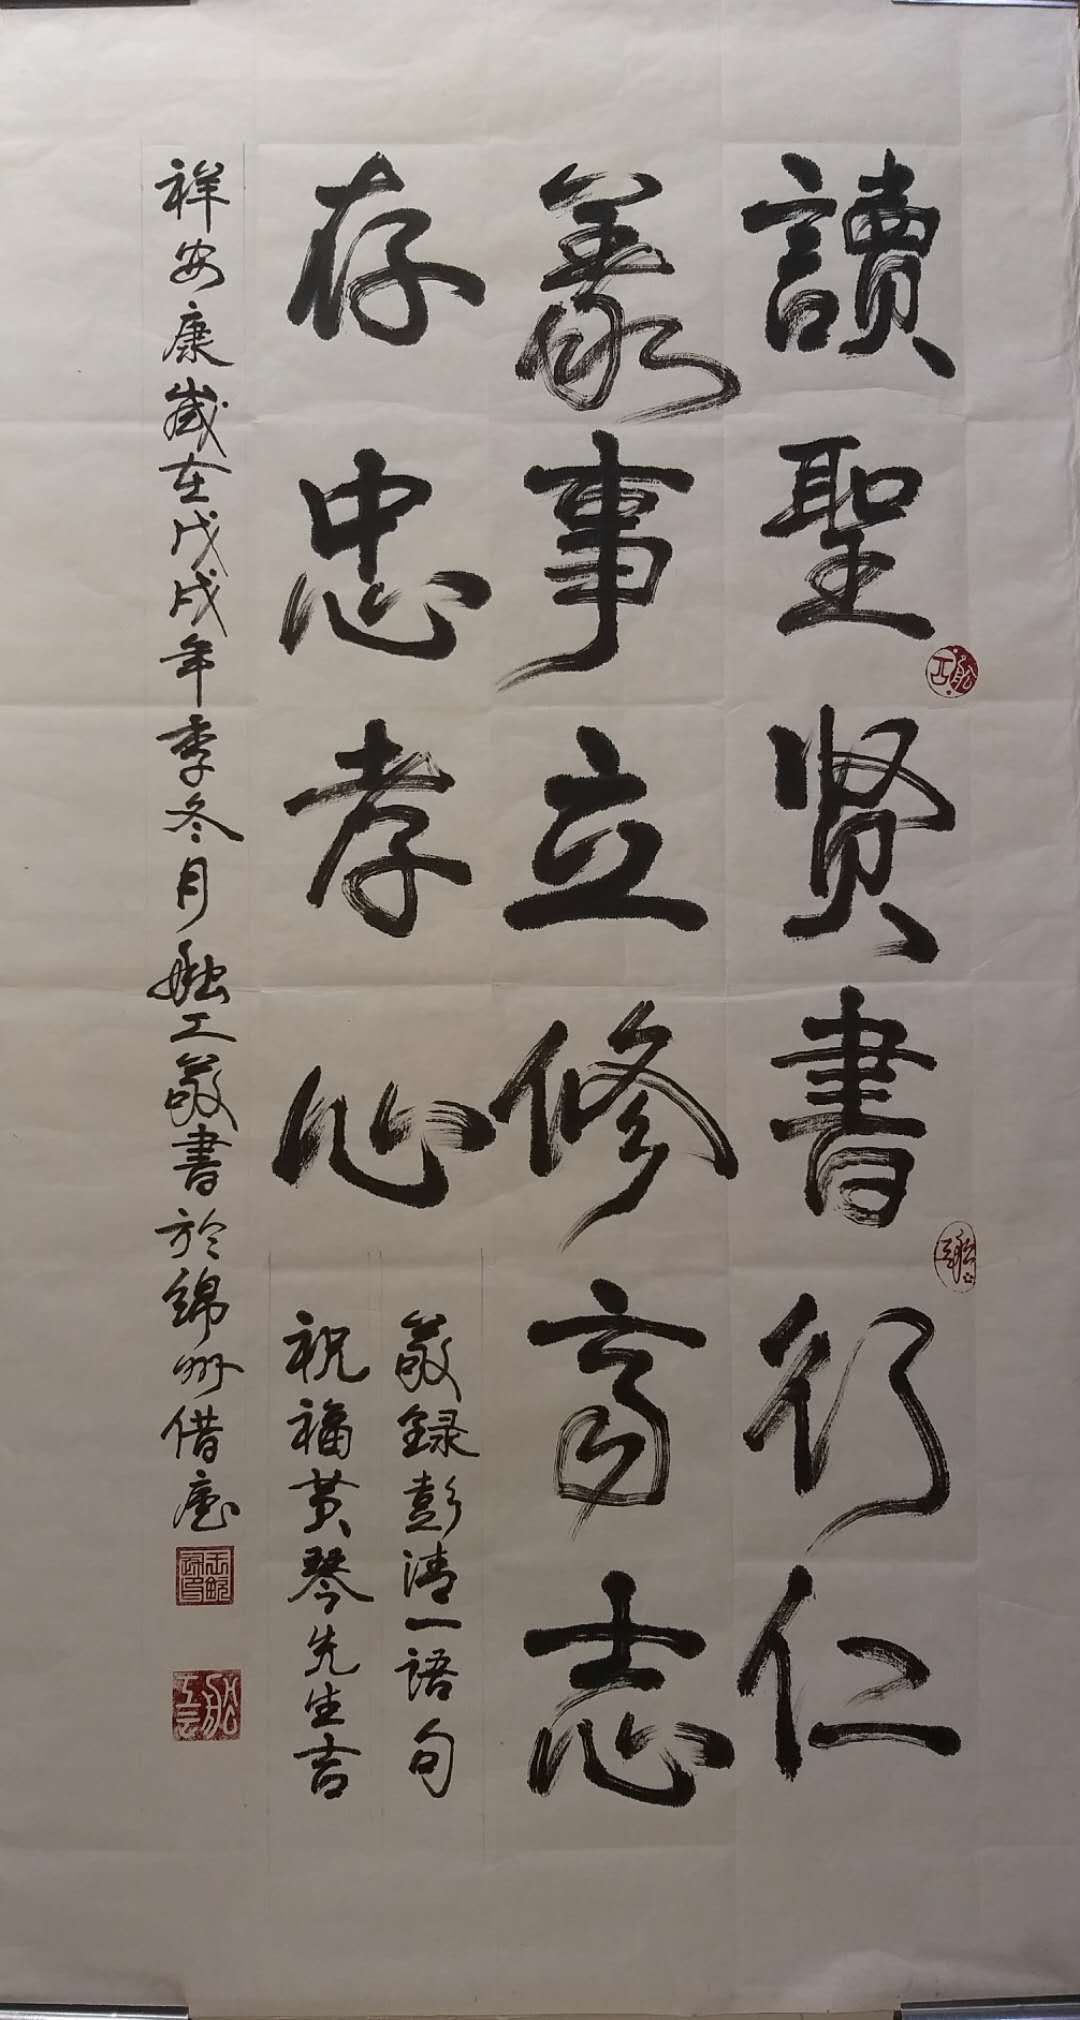 讀聖贤書行仁
義事立修齊志
存忠孝心
敬録彭清一語句
祝福黄琴先生吉
祥安康歲在戊戌年季冬月舩工敬書於錦州借